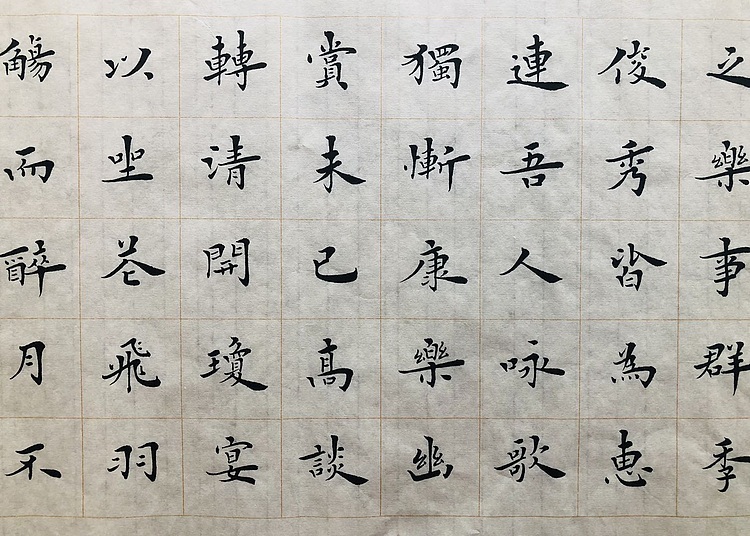 之樂事群季
俊秀皆為惠
連吾人咏歌
獨慚康樂幽
賞未已高談
轉清開瓊宴
以坐花飛羽
觴而醉月不